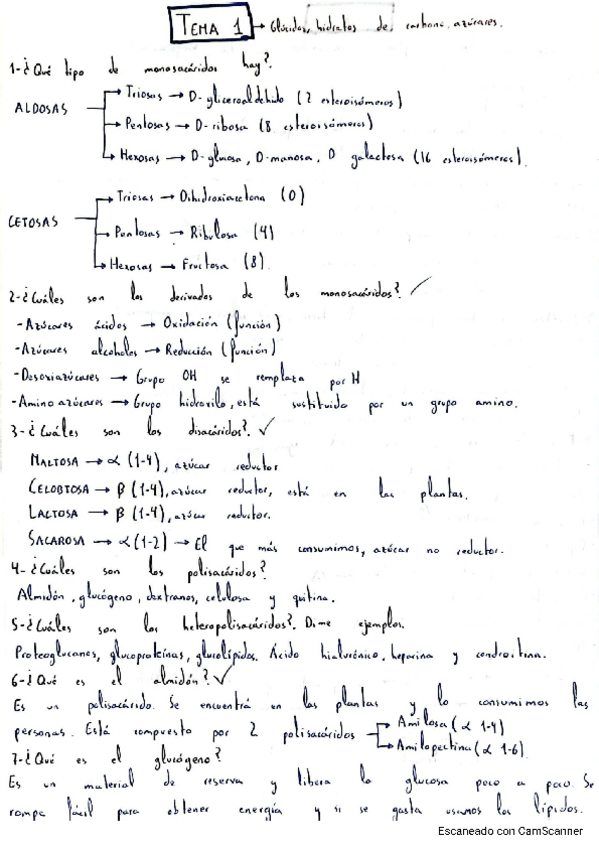 TEMA 1 → Glúcidos, hidratos de carbono, azúcares.
1-¿Qué tipo de monosacáridos hay?
ALDOSAS
→ Triosas → D-gliceraldehido (2 estereoisómeros)
→ Pentosas → D-ribosa (8 estereoisómeros)
→ Hexosas → D-glucosa, D-manosa, D galactosa (16 estereoisómeros)
CETOSAS
→ Triosas → Dihidroxiacetona (0)
→ Pentosas → Ribulosa (4)
→ Hexosas → Fructosa (8)
2-¿Cuáles son los derivados de los monosacáridos? ✓
-Azúcares ácidos → Oxidación (función)
-Azúcares alcoholes → Reducción (función)
-Desoxiazúcares → Grupo OH se remplaza por H
-Amino azúcares → Grupo hidroxilo, está sustituido por un grupo amino.
3-¿Cuáles son los disacáridos? ✓
MALTOSA → α (1-4), azúcar reductor
CELOBIOSA → β (1-4), azúcar reductor, está en las plantas.
LACTOSA → β (1-4), azúcar reductor.
SACAROSA → α (1-2) → El que más consumimos, azúcar no reductor.
4-¿Cuáles son los polisacáridos?
Almidón, glucógeno, dextranos, celulosa y quitina.
5-¿Cuáles son los heteropolisacáridos? Dime ejemplos.
Proteoglucanos, glucoproteínas, glucolípidos. Ácido hialurónico, heparina y condroitina.
6-¿Qué es el almidón? ✓
Es un polisacárido. Se encuentra en las plantas y lo consumimos las
personas. Está compuesto por 2 polisacáridos → Amilosa (α 1-4)
→ Amilopectina (α 1-6)
7-¿Qué es el glucógeno?
Es un material de reserva y libera la glucosa poco a poco. Se
rompe fácil para obtener energía y si se gasta usamos los lípidos.
Escaneado con CamScanner